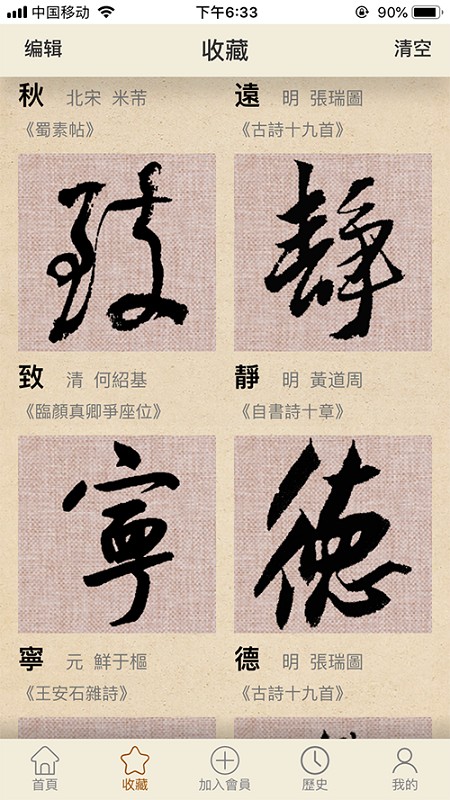 中国移动 下午6:33 90%
编辑 收藏 清空
秋 北宋 米芾 遠 明 張瑞圖
《蜀素帖》 《古詩十九首》
致 靜
致 清 何紹基 靜 明 黃道周
《臨顏真卿爭座位》 《自書詩十章》
寧 德
寧 元 鮮于樞 德 明 張瑞圖
《王安石雜詩》 《古詩十九首》
首頁 收藏 加入會員 歷史 我的